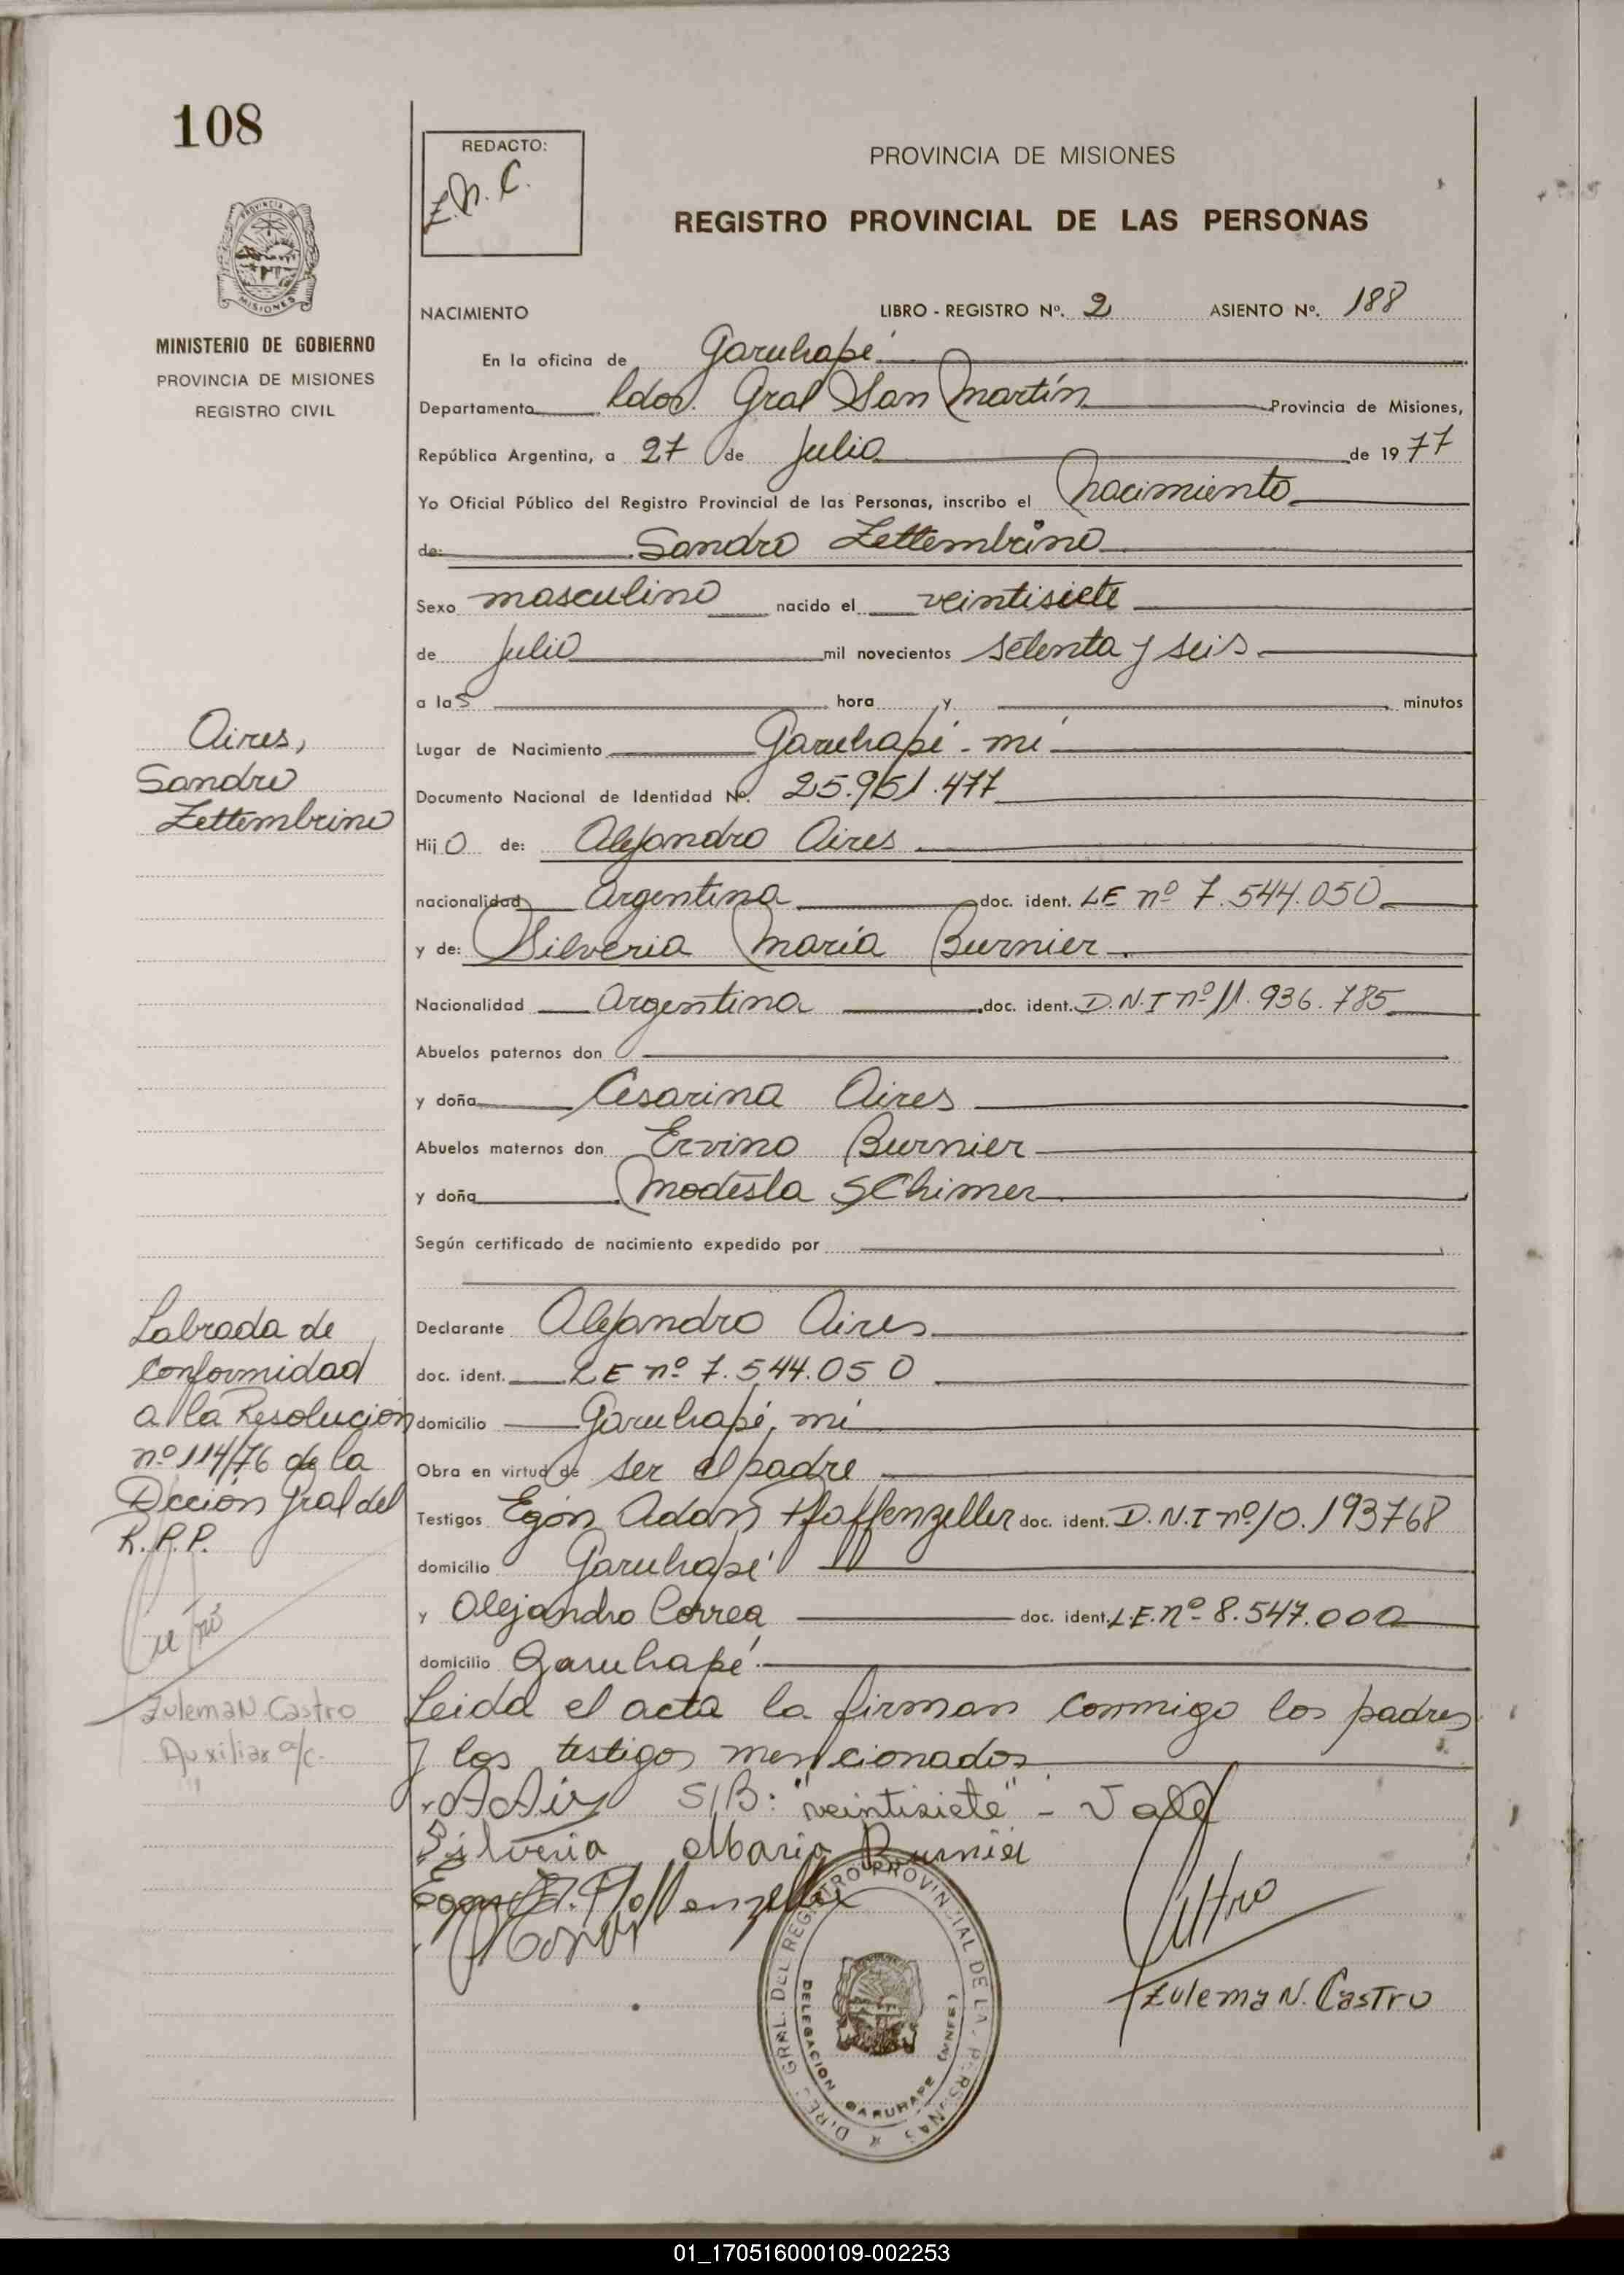 108
REDACTO:
Z.N.C.
PROVINCIA DE MISIONES
REGISTRO PROVINCIAL DE LAS PERSONAS
PROVINCIA DE
MISIONES
MINISTERIO DE GOBIERNO
PROVINCIA DE MISIONES
REGISTRO CIVIL
NACIMIENTO LIBRO - REGISTRO Nº. 2 ASIENTO Nº. 188
En la oficina de Garuhapé
Departamento Ldor. Gral San Martín Provincia de Misiones,
República Argentina, a 27 de Julio de 1977
Yo Oficial Público del Registro Provincial de las Personas, inscribo el nacimiento
de: Sandro Zettembrino
Sexo masculino nacido el veintisiete
de Julio mil novecientos setenta y seis
a las hora y minutos
Lugar de Nacimiento Garuhapé - mí
Documento Nacional de Identidad Nº. 25.951.477
Aires,
Sandro
Zettembrino
Hijo de: Alejandro Aires
nacionalidad Argentina doc. ident. LE nº 7.544.050
y de: Silveria María Burnier
Nacionalidad Argentina doc. ident. D.N.I nº 11.936.785
Abuelos paternos don
y doña Cesarina Aires
Abuelos maternos don Ervino Burnier
y doña Modesta SChimer
Según certificado de nacimiento expedido por
Declarante Alejandro Aires
doc. ident. LE nº 7.544.050
domicilio Garuhapé, mí
Obra en virtud de ser el padre
Testigos Egon Adan Pfaffenzeller doc. ident. D.N.I nº 10.193768
domicilio Garuhapé
y Alejandro Correa doc. ident. L.E. nº 8.547.000
domicilio Garuhapé
Labrada de
Conformidad
a la Resolución
nº 114/76 de la
Dcción Gral del
R.P.P.
Castro
Zulema N. Castro
Auxiliar a/c.
Leida el acta la firman conmigo los padres
y los testigos mencionados
S/B: "veintisiete" - Vale
Silveria Maria Burnier
Egon A. Pfaffenzeller
Castro
Zulema N. Castro
DIREC. GRAL. DEL REGISTRO PROVINCIAL DE LAS PERSONAS
DELEGACION GARUHAPE (MNES)
01_170516000109-002253